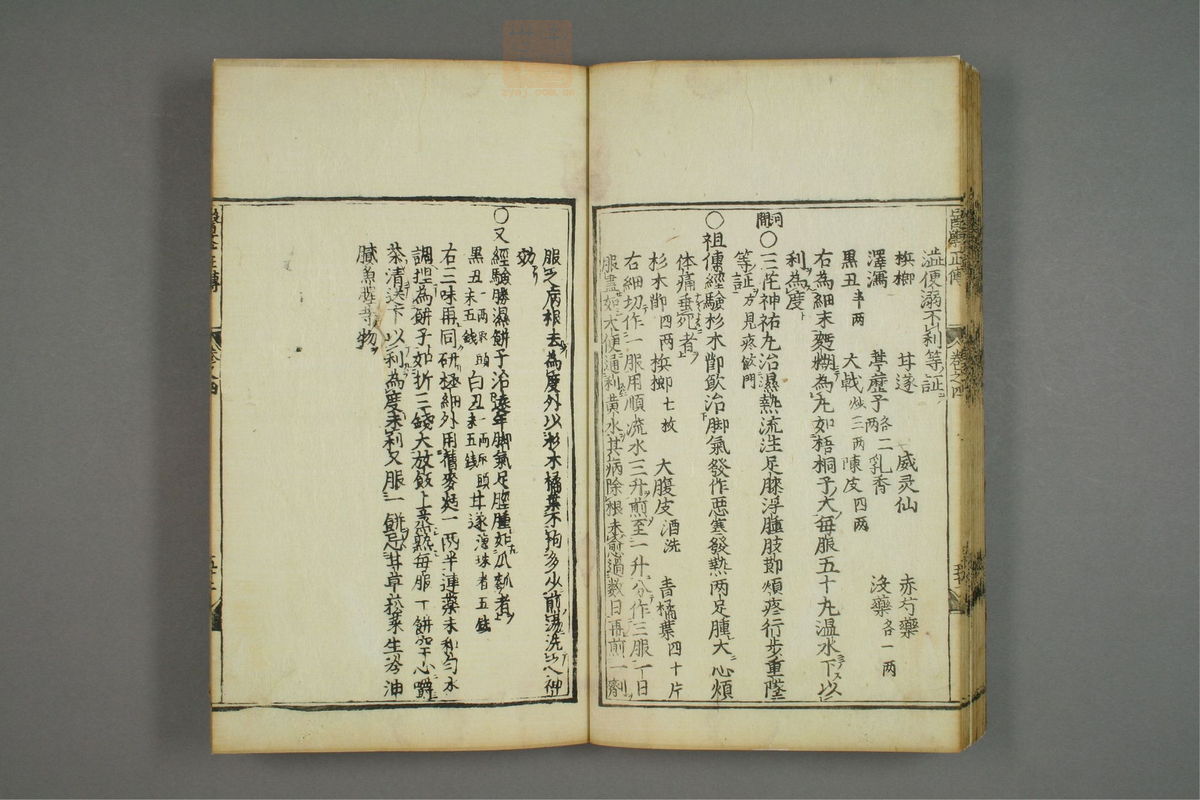 溢便溺不利等証
梹榔 甘遂 威灵仙 赤芍藥
澤瀉 葶藶子各二两 乳香 没藥各一两
黒丑半两 大戟炒三两 陳皮四两
右為細末麪糊為丸如梧桐子大毎服五十丸温水下以
利為度
河間
〇三花神祐丸治濕熱流注足膝浮腫肢節煩疼行步重墜
等証方見痰飲門
〇祖傳經驗杉木節飲治脚氣發作悪寒發熱两足腫大心煩
体痛垂死者
杉木節四两 梹榔七枚 大腹皮酒洗 青橘葉四十片
右細切作一服用順流水三升煎至一升分作三服一日
服盡如大便通利黄水其病除根未愈過数日再煎一劑
服之病根去為度外以杉木橘葉不拘多少煎湯洗之神
効
〇又經驗勝濕餅子治遠年脚氣足腔腫如瓜瓠者
黒丑一两取頭末五錢 白丑一两取頭末五錢 甘遂連珠者五錢
右三味再同研極細外用蕎麥麪一两半連藥末和匀水
調捏為餅子如折三錢大放飯上蒸熟每服一餅空心嚼
茶清送下以利為度未利又服一餅忌甘草菘菜生冷油
膩魚
等物